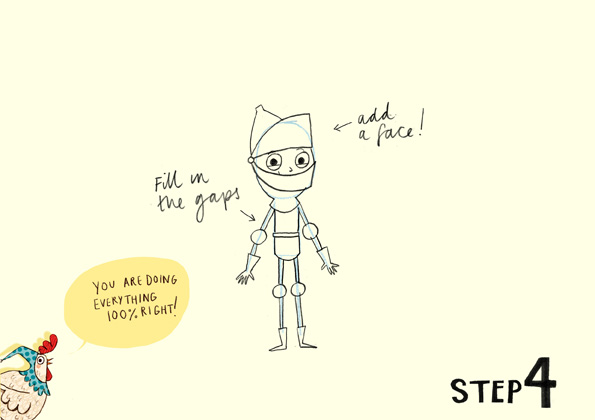 add
a face!
Fill in
the gaps
YOU ARE DOING
EVERYTHING
100% RIGHT!
STEP4